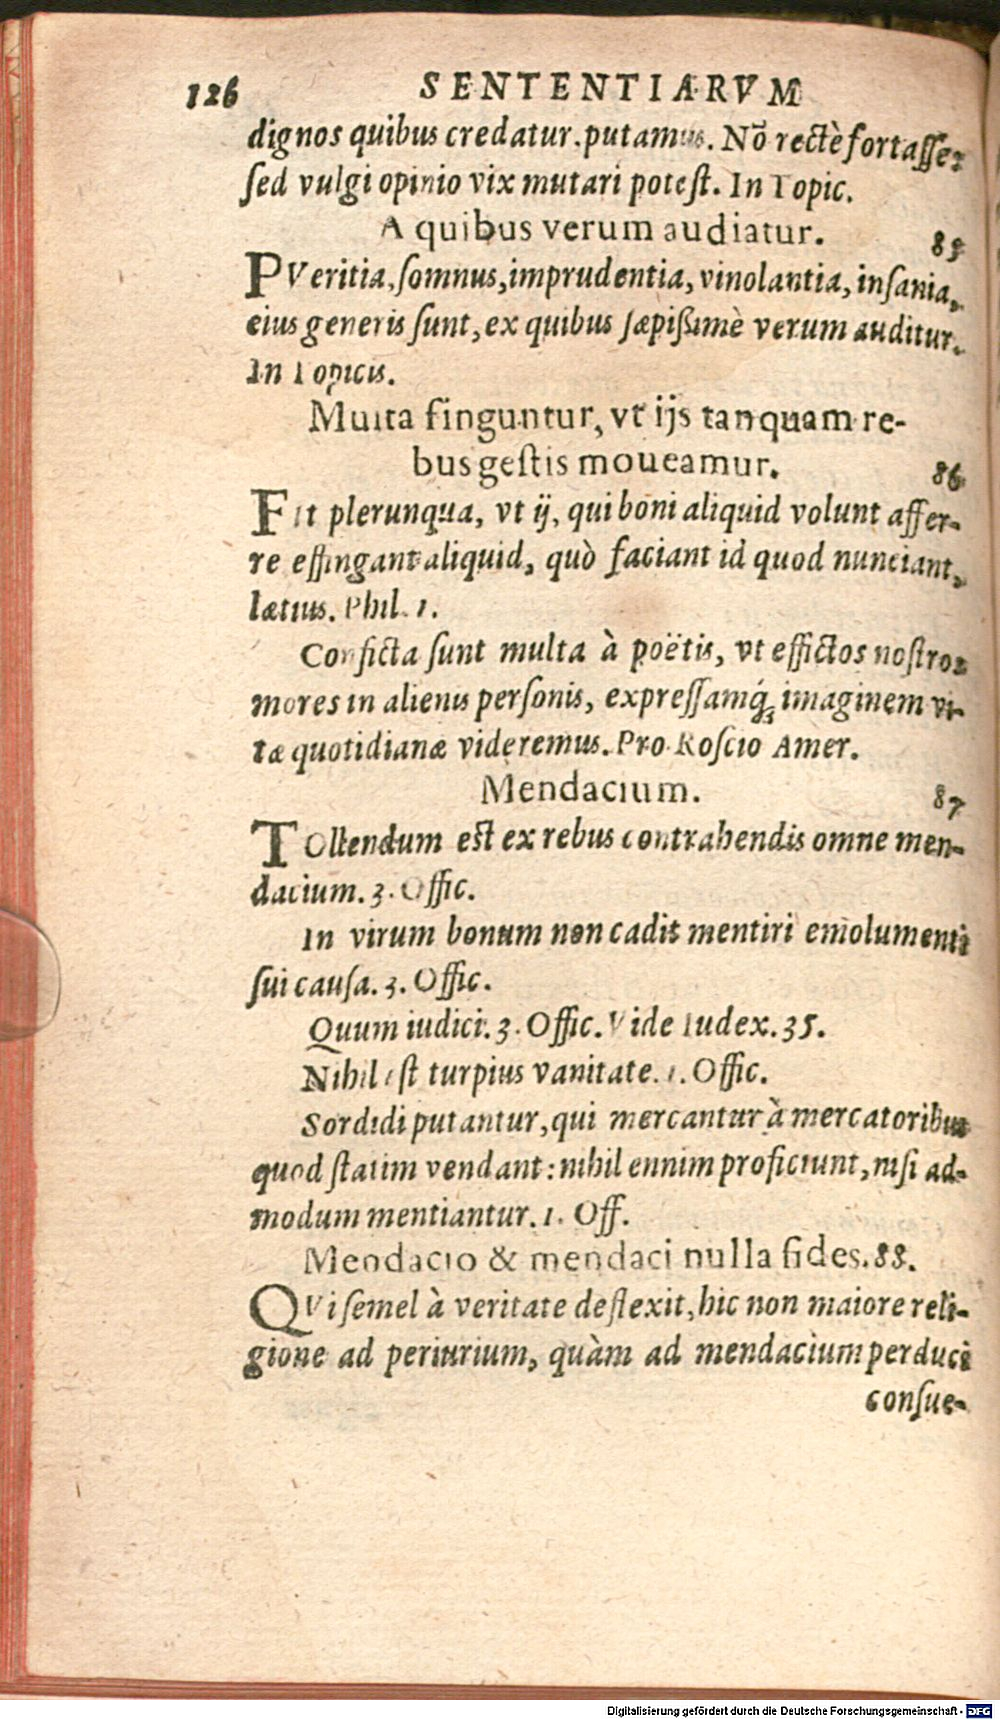 126 SENTENTIARVM
dignos quibus credatur. putamus. Nō rectè fortasse:
sed vulgi opinio vix mutari potest. In Topic.
A quibus verum audiatur. 85
PVeritia, somnus, imprudentia, vinolantia, insania,
eius generis sunt, ex quibus sæpissimè verum auditur.
In Topicis.
Multa finguntur, vt ijs tanquam re-
bus gestis moueamur. 86
Fit plerunqua, vt ij, qui boni aliquid volunt affer-
re effingant aliquid, quò faciant id quod nunciant,
lætius. Phil. 1.
Conficta sunt multa à poëtis, vt effictos nostros
mores in alienis personis, expressamq́; imaginem vi-
tæ quotidianæ videremus. Pro Roscio Amer.
Mendacium. 87
TOllendum est ex rebus contrahendis omne men-
dacium. 3. Offic.
In virum bonum non cadit mentiri emolumenti
sui causa. 3. Offic.
Quum iudici. 3. Offic. Vide Iudex. 35.
Nihil est turpius vanitate. 1. Offic.
Sordidi putantur, qui mercantur à mercatoribus
quod statim vendant: nihil ennim proficiunt, nisi ad-
modum mentiantur. 1. Off.
Mendacio & mendaci nulla fides. 88.
QVi semel à veritate deflexit, hic non maiore reli-
gione ad periurium, quàm ad mendacium perduci
consue-
Digitalisierung gefördert durch die Deutsche Forschungsgemeinschaft - DFG